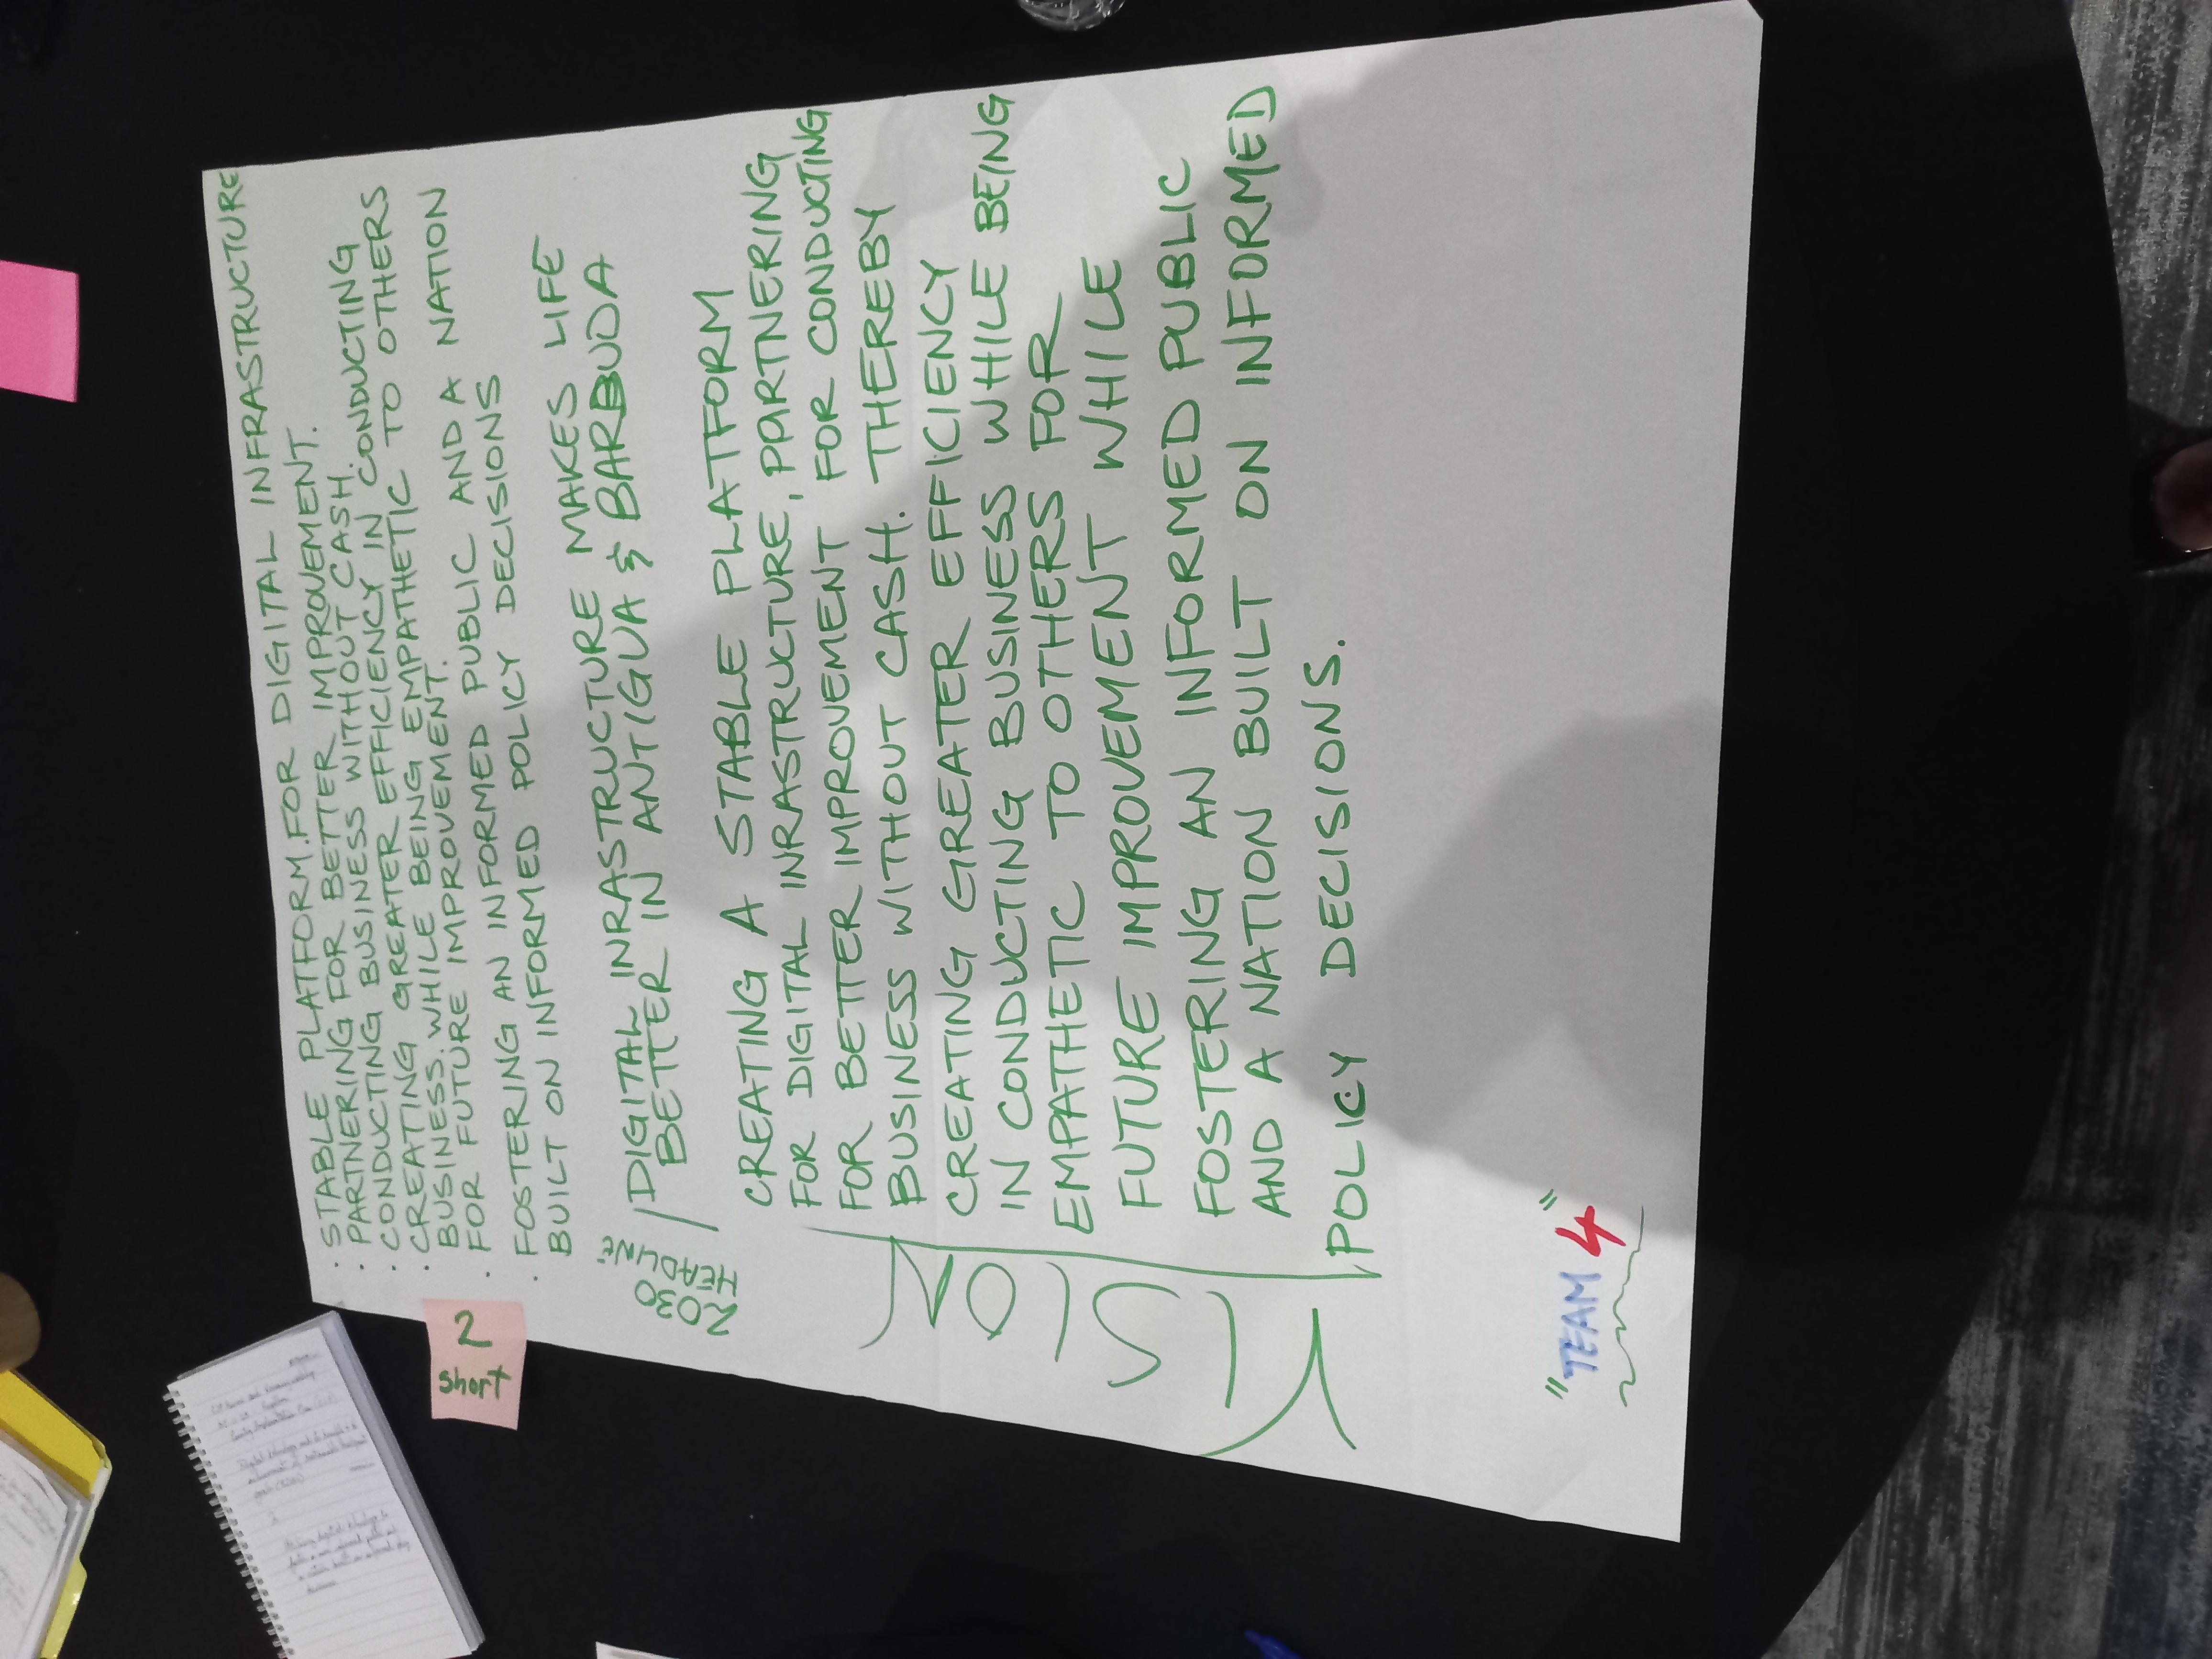 · STABLE PLATFORM. FOR DIGITAL INFRASTRUCTURE
· PARTNERING FOR BETTER IMPROVEMENT.
· CONDUCTING BUSINESS WITHOUT CASH.
· CREATING GREATER EFFICIENCY IN CONDUCTING
BUSINESS. WHILE BEING EMPATHETIC TO OTHERS
· FOR FUTURE IMPROVEMENT.
· FOSTERING AN INFORMED PUBLIC AND A NATION
BUILT ON INFORMED POLICY DECISIONS
2030
HEADLINE
DIGITAL INRASTRUCTURE MAKES LIFE
BETTER IN ANTIGUA & BARBUDA
VISION
CREATING A STABLE PLATFORM
FOR DIGITAL INRASTRUCTURE, PARTNERING
FOR BETTER IMPROVEMENT FOR CONDUCTING
BUSINESS WITHOUT CASH. THEREBY
CREATING GREATER EFFICIENCY
IN CONDUCTING BUSINESS WHILE BEING
EMPATHETIC TO OTHERS FOR
FUTURE IMPROVEMENT WHILE
FOSTERING AN INFORMED PUBLIC
AND A NATION BUILT ON INFORMED
POLICY DECISIONS.
"TEAM 4"
2
short